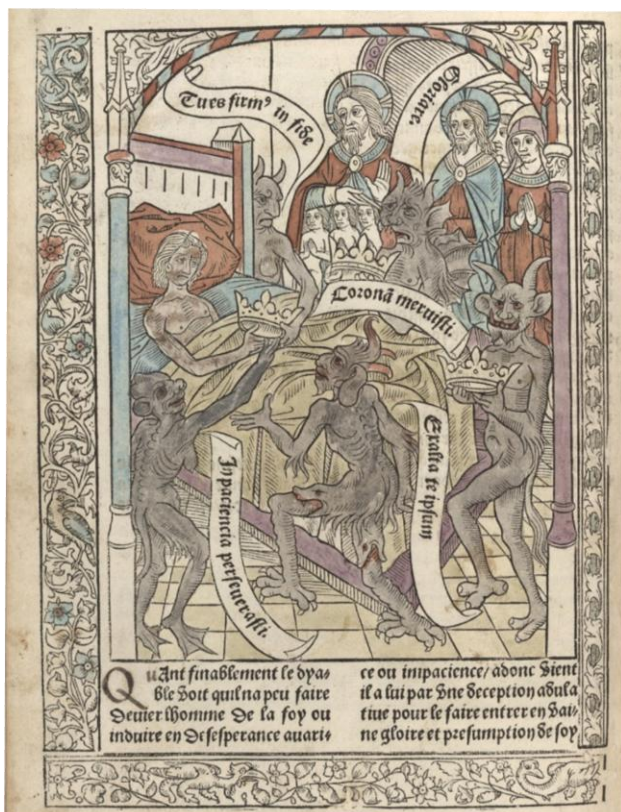 Tu es firmꝰ in fide
Gloriare.
Coronā meruisti.
Exalta te ipsum
In paciencia perseverasti.
QuAnt finablement le dya-
ble Voit quil na peu faire
Devier lhomme de la foy ou
induire en desesperance avari-
ce ou impacience/ adonc Vient
il a lui par Vne deception adula
tiue pour le faire entrer en Vai-
ne gloire et presumption de soy